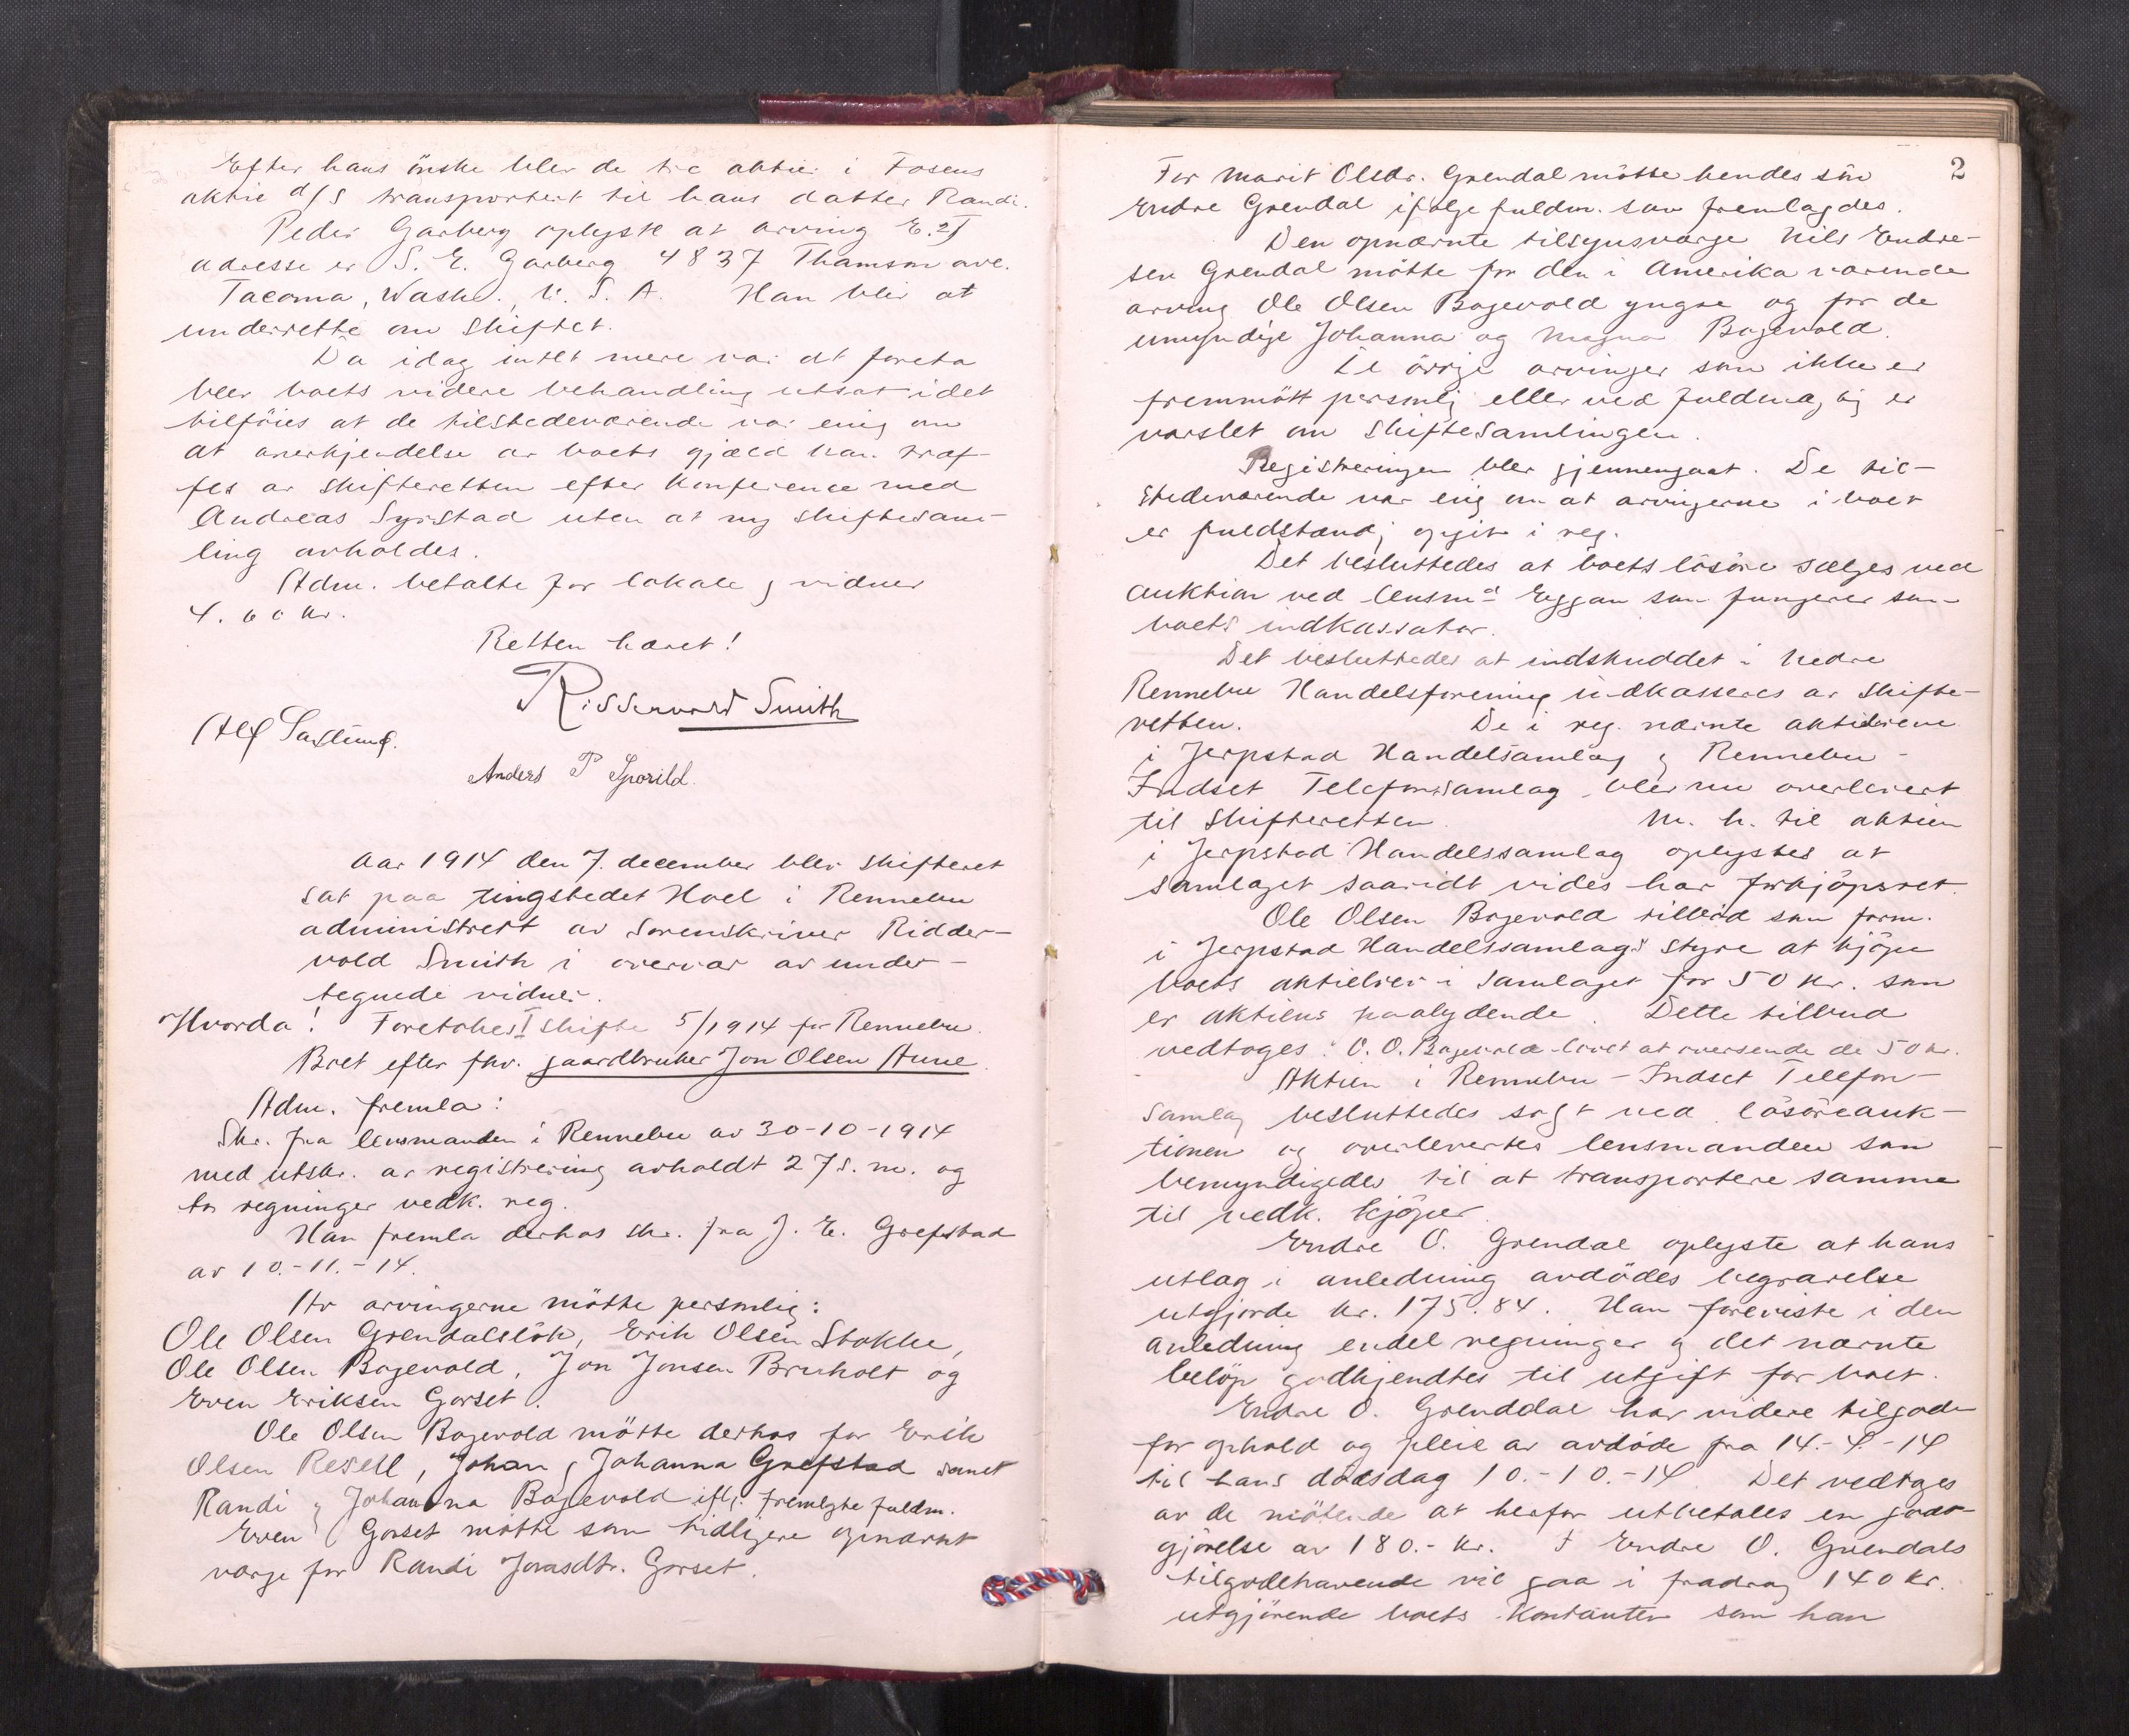 Efter hans önske blev de tre aktier i Fosens
aktie d/s transportert til hans datter Randi.
Peder Garberg oplyste at arving E. 2s
adresse er S. E. Garberg 4837 Thamson ave.
Tacoma, Wash., U. S. A. Han blir at
underrette om skiftet.
Da idag intet mere var at foreta
blev boets videre behandling utsat idet
tilföies at de tilstedeværende var enig om
at anerkjendelse av boets gjæld kan træf-
fes av skifteretten efter konference med
Andreas Syrstad uten at ny skiftesam-
ling avholdes.
Adm. betalte for lokale og vidner
4.60 kr.
Retten hævet!
Riddervold Smith
Alf
Anders P Sporild.
Aar 1914 den 7. december blev skifteret
sat paa tingstedet Hoel i Rennebu
administrert av sorenskriver Ridder-
vold Smith i overvær av under-
tegnede vidner.
Hvorda! Foretokes I skifte 5/1914 for Rennebu.
Boet efter fhv. gaardbruker Jon Olsen Aune.
Adm. fremla:
Skr. fra lensmanden i Rennebu av 30-10-1914
med utskr. av registrering avholdt 27 s. m. og
to regninger vedk. reg.
Han fremla derhos skr. fra J. E. Grefstad
av 10.-11.-14.
Av arvingerne mötte personlig:
Ole Olsen Grendalslök, Erik Olsen Stokke,
Ole Olsen Bogevold, Jon Jonsen Bruholt og
Even Eriksen Gorset.
Ole Olsen Bogevold mötte derhos for Erik
Olsen Resell, Johan og Johanna Grefstad samt
Randi og Johanna Bogevold iflg. fremlagte fuldm.
Even Gorset mötte som tidligere opnævnt
verge for Randi Jonasdtr. Gorset.
2
For Marit Olsdr. Grendal mötte hendes sön
Endre Grendal ifölge fuldm. som fremlagdes.
Den opnævnte tilsynsverge Nils Endre-
sen Grendal mötte for den i Amerika værende
arving Ole Olsen Bogevold yngre og for de
umyndige Johanna og Magna Bogevold.
De övrige arvinger som ikke er
fremmött personlig eller ved fuldmægtig er
varslet om skiftesamlingen.
Registreringen blev gjennemgaat. De til-
stedeværende var enig om at arvingerne i boet
er fuldstændig opgit i reg.
Det besluttedes at boets lösöre sælges ved
auktion ved lensmd Eggan som fungerer som
boets indkassator.
Det besluttedes at indskuddet i Nedre
Rennebu Handelsforening indkasseres av skifte-
retten. De i reg. nævnte aktiebreve
i Jerpstad Handelsamlag og Rennebu -
Indset Telefonsamlag blev nu overlevert
til skifteretten. M. h. til aktien
i Jerpstad Handelssamlag oplystes at
samlaget saavidt vides har forkjöpsret.
Ole Olsen Bogevold tilbød som form.
i Jerpstad Handelssamlags styre at kjöpe
boets aktiebrev i samlaget for 50 kr. som
er aktiens paalydende. Dette tilbud
vedtoges. O. O. Bogevold lovet at oversende de 50 kr.
Aktien i Rennebu - Indset Telefon-
samlag besluttedes solgt ved lösöreauk-
tionen og overlevertes lensmanden som
bemyndigedes til at transportere samme
til vedk. kjöper.
Endre O. Grendal oplyste at hans
utlæg i anledning avdödes begravelse
utgjorde kr. 175.84. Han foreviste i den
anledning endel regninger og det nævnte
belöp godkjendtes til utgift for boet.
Endre O. Grenddal har videre tilgode
for ophold og pleie av avdöde fra 14.-4.-14
til hans dödsdag 10.-10.-14. Det vedtoges
av de mötende at herfor utbetales en godt-
gjörelse av 180.- kr. I Endre O. Grendals
tilgodehavende vil gaa i fradrag 140 kr.
utgjörende boets kontanter som han